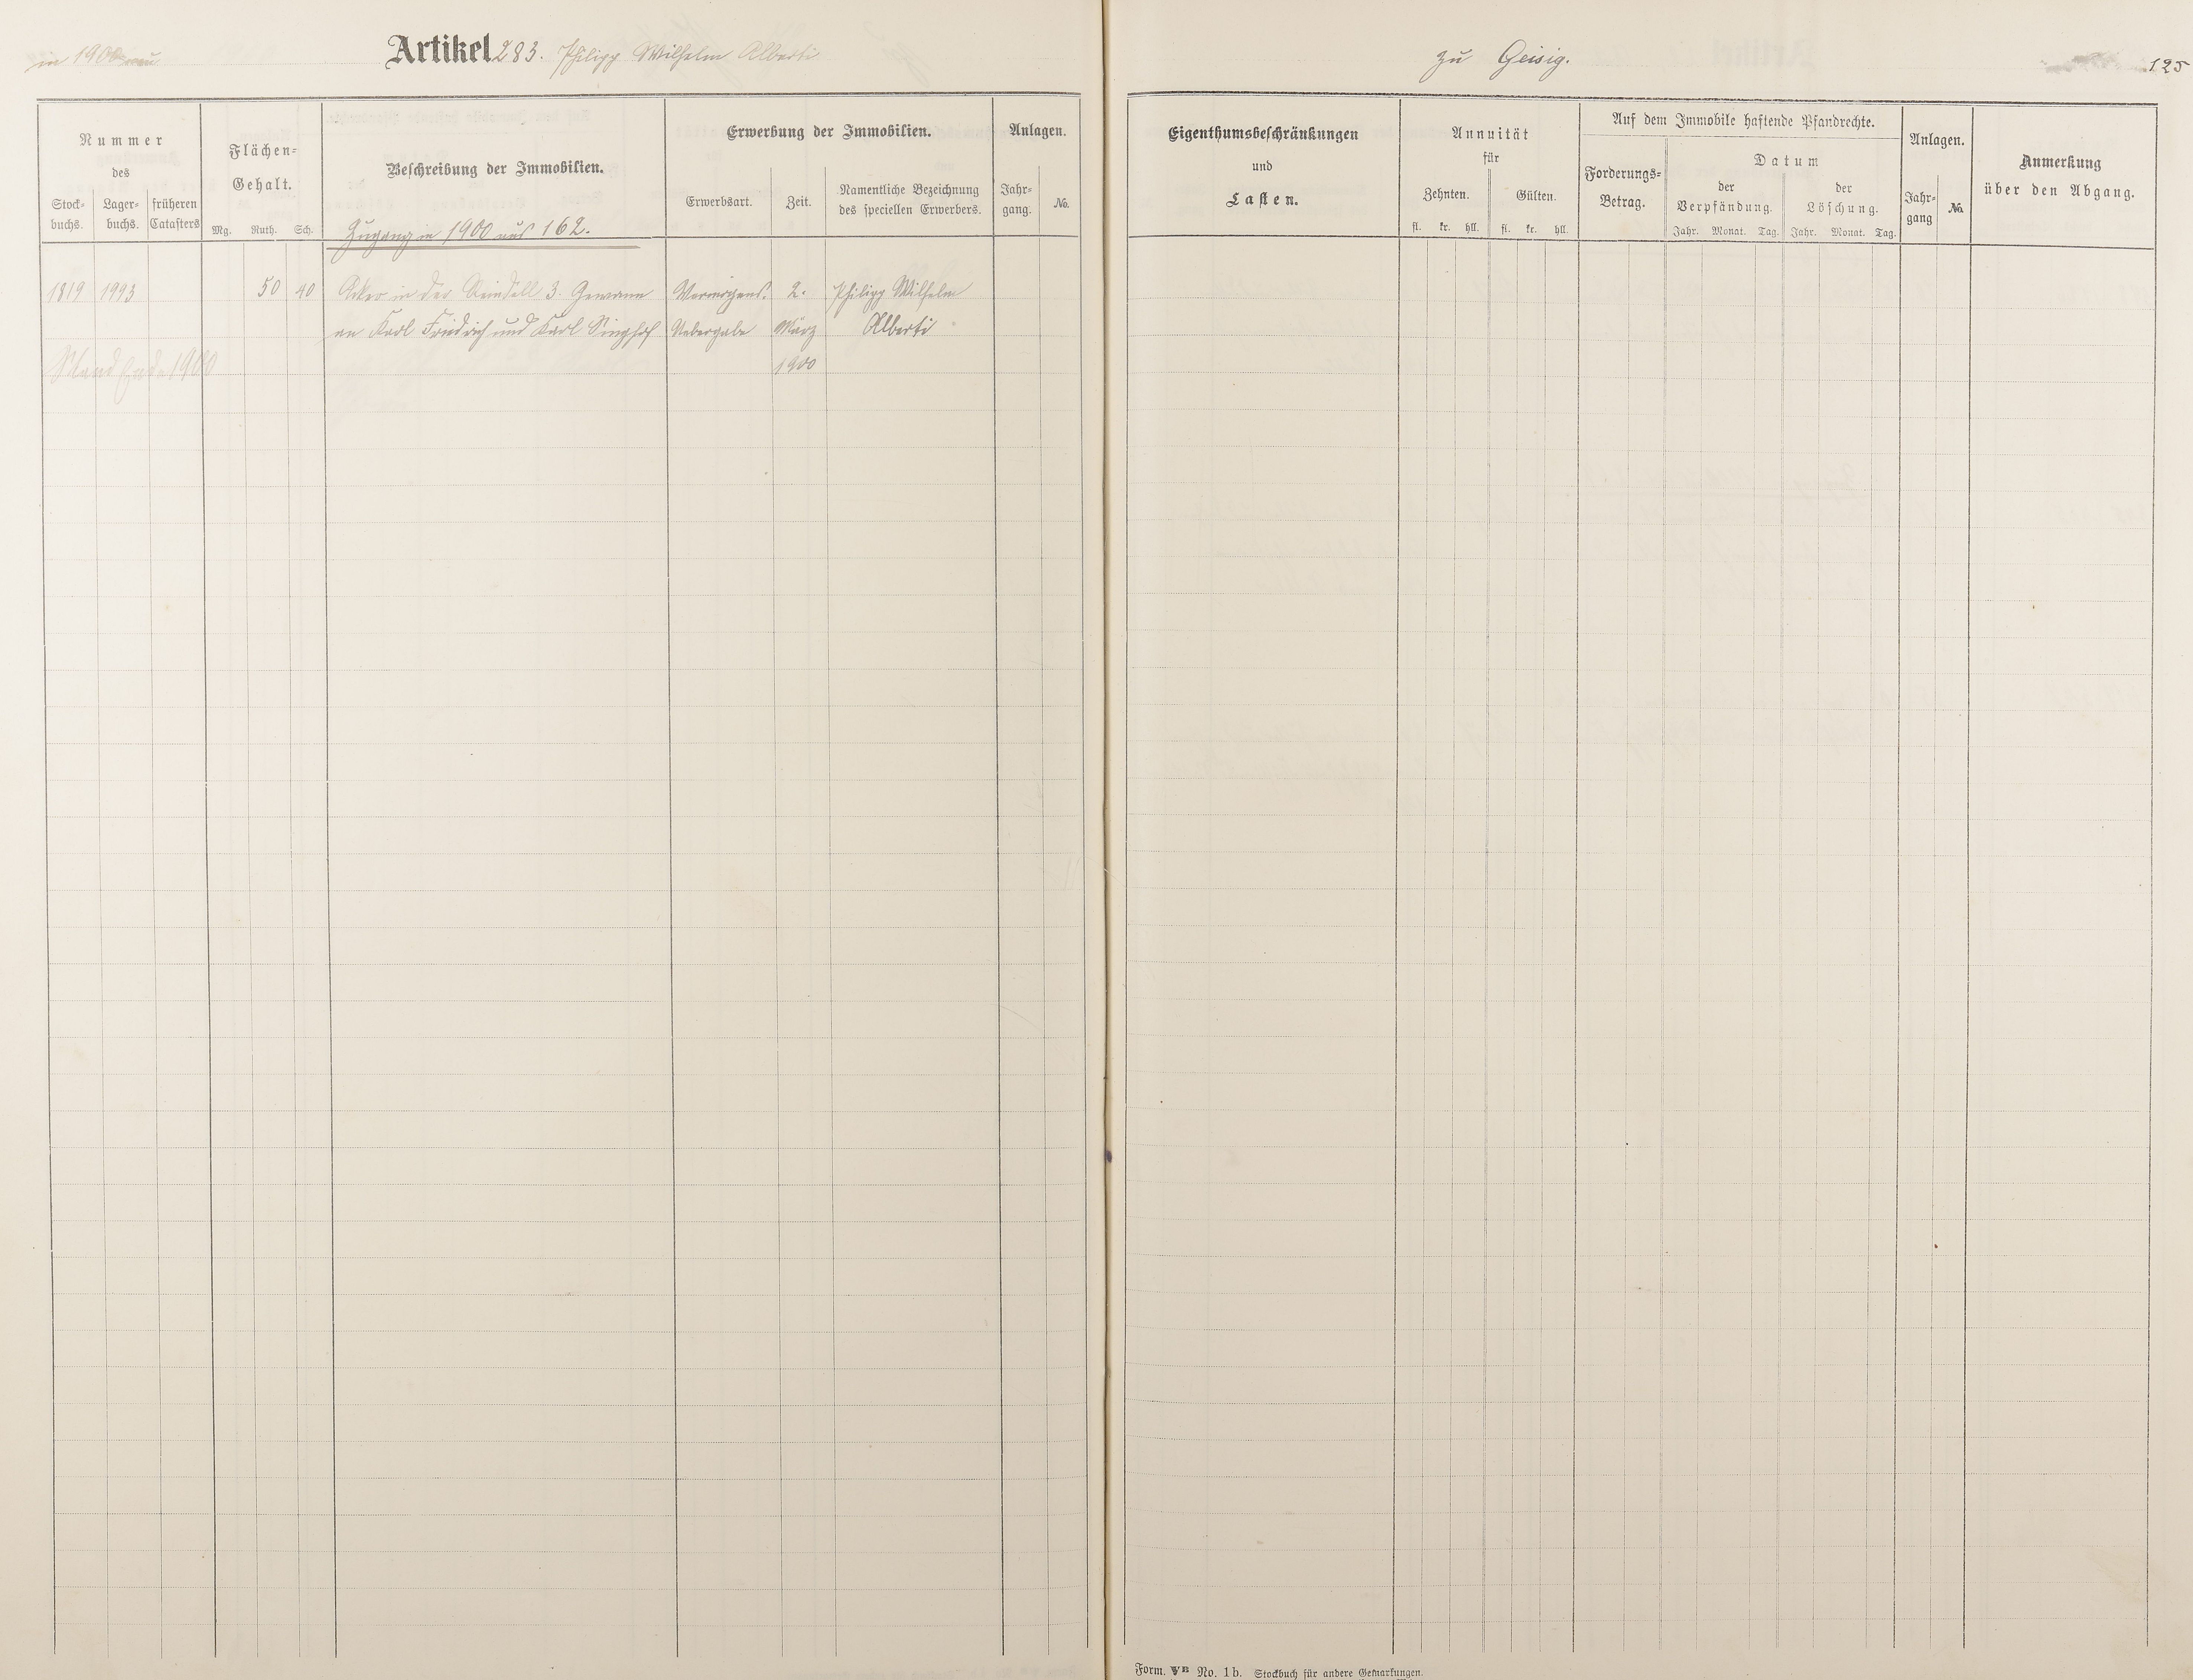 in 1900 neu
Artikel 283. Philipp Wilhelm Alberti
zu Geisig.
125
Nummer
des
Stock-
buchs.
Lager-
buchs.
früheren
Catasters
Flächen-
Gehalt.
Mg. Ruth. Sch.
Beschreibung der Immobilien.
Erwerbung der Immobilien.
Erwerbsart.
Zeit.
Namentliche Bezeichnung
des speciellen Erwerbers.
Anlagen.
Jahr-
gang.
No.
Zugang in 1900 aus 162.
1819 1993 50 40 Acker in der 3. Gewann Vermögens. 2. Philipp Wilhelm
an Karl Friedrich und Karl Singhof Uebergabe März Alberti
Stand Ende 1900
1900
Eigenthumsbeschränkungen
und
Lasten.
Annuität
für
Zehnten.
Gülten.
fl. kr. hll. fl. kr. hll.
Auf dem Immobile haftende Pfandrechte.
Forderungs-
Betrag.
Datum
der
Verpfändung.
der
Löschung.
Jahr. Monat. Tag. Jahr. Monat. Tag.
Anlagen.
Jahr-
gang
No.
Anmerkung
über den Abgang.
Form. VB No. 1b. Stockbuch für andere Gemarkungen.